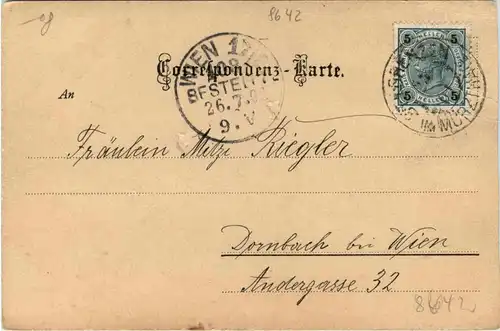 8642
Correspondenz-Karte.
WIEN 17/1
BESTELLT
26.7.
9. V
5 5
5 5
IM MÜRZ
An
Fräulein Mitzi Riegler
Dornbach bei Wien
Andergasse 32
8642